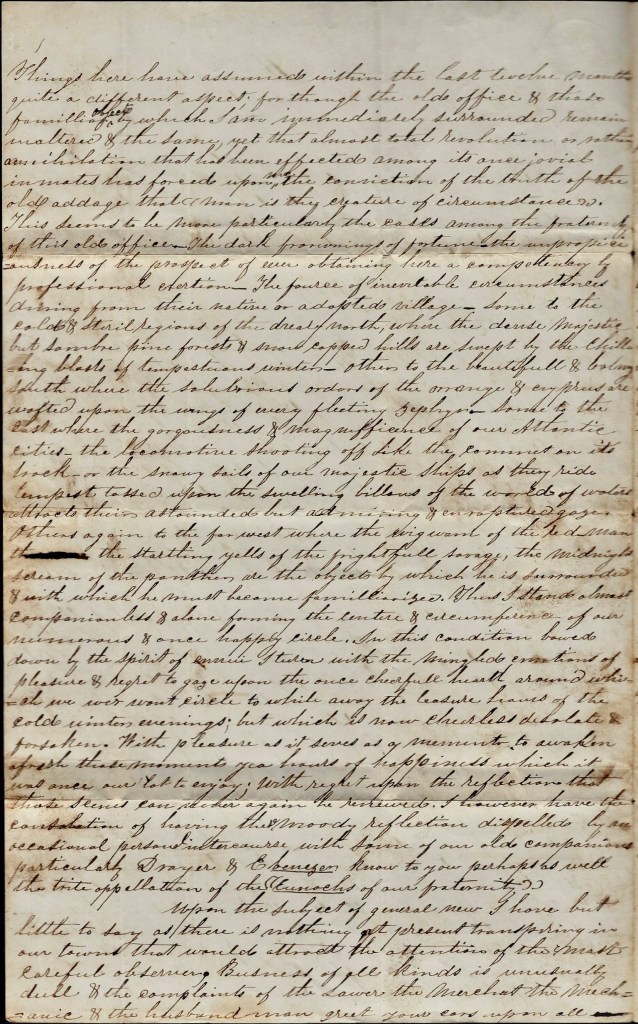 Things here have assumed within the last twelve months
quite a different aspect; for though the old office & those
familliar objects by which I am immediately surrounded remain
unaltered & the same, yet that almost total revolution or rather
annihilation that has been effected among its once jovial
inmates has forced upon me the conviction of the truth of the
old addage that man is the creature of circumstances.
This seems to be more particularly the case among the fraternity
of this old office— The dark fronownings of fortune the unpropice
=ousness of the prospect of ever obtaining here a competency by
professional exertion— The fource of inevitable circumstances
driving from their native or adopted village— some to the
cold & steril regions of the dreary north, where the dense majestic
but sombre pine forests & snow capped hills are swept by the chill
=ing blasts of tempestuous winter— others to the beautifull & balmy
south where the salubrious ordors of the orrange & cyprus are
wafted upon the wings of every fleeting zephyr— some to the
East where the gorgousness & magnifficence of our Atlantic
cities— the locomotive shooting off like the commet on its
track— or the snowy sails of our majestic ships as they ride
tempest tossed upon the swelling billows of the world of waters
attracts their astounded but admiring & enraptured gaze
Others again to the far west where the wigwam of the red-man
the startling yells of the frightfull savage, the midnight
scream of the panther are the objects by which he is surrounded
& with which he must become familliarized. Thus I stand almost
companionless & alone forming the centre & circumference of our
numerous & once happy circle. In this condition bowed
down by the spirit of ennui I turn with the mingled emotions of
pleasure & regret to gaze upon the once cheerfull hearth around whi=
=ch we wer wont circle to while away the leasure hours of the
cold winter evenings; but which is now cheerless disolate &
forsaken. With pleasure as it serves as a memento to awaken
afresh those moments yea hours of happiness which it
was once our lot to enjoy; with regret upon the reflection that
those scenes can never again be renewed. I however have the
consolation of having the moody reflection dispelled by an
occasional personal intercourse with some of our old companions
particularly Drayer & Ebenezer know to you perhaps as well
the trite appellation of the Eunochs of our fraternity
Upon the subject of general new I have but
little to say as there is nothing at present transpiring in
our town that would attract the attention of the most
careful observer. Business of all kinds is unusually
dull & the complaints of the Lawer the Merchat the Mech=
=anic & the husband man greet your ears upon all